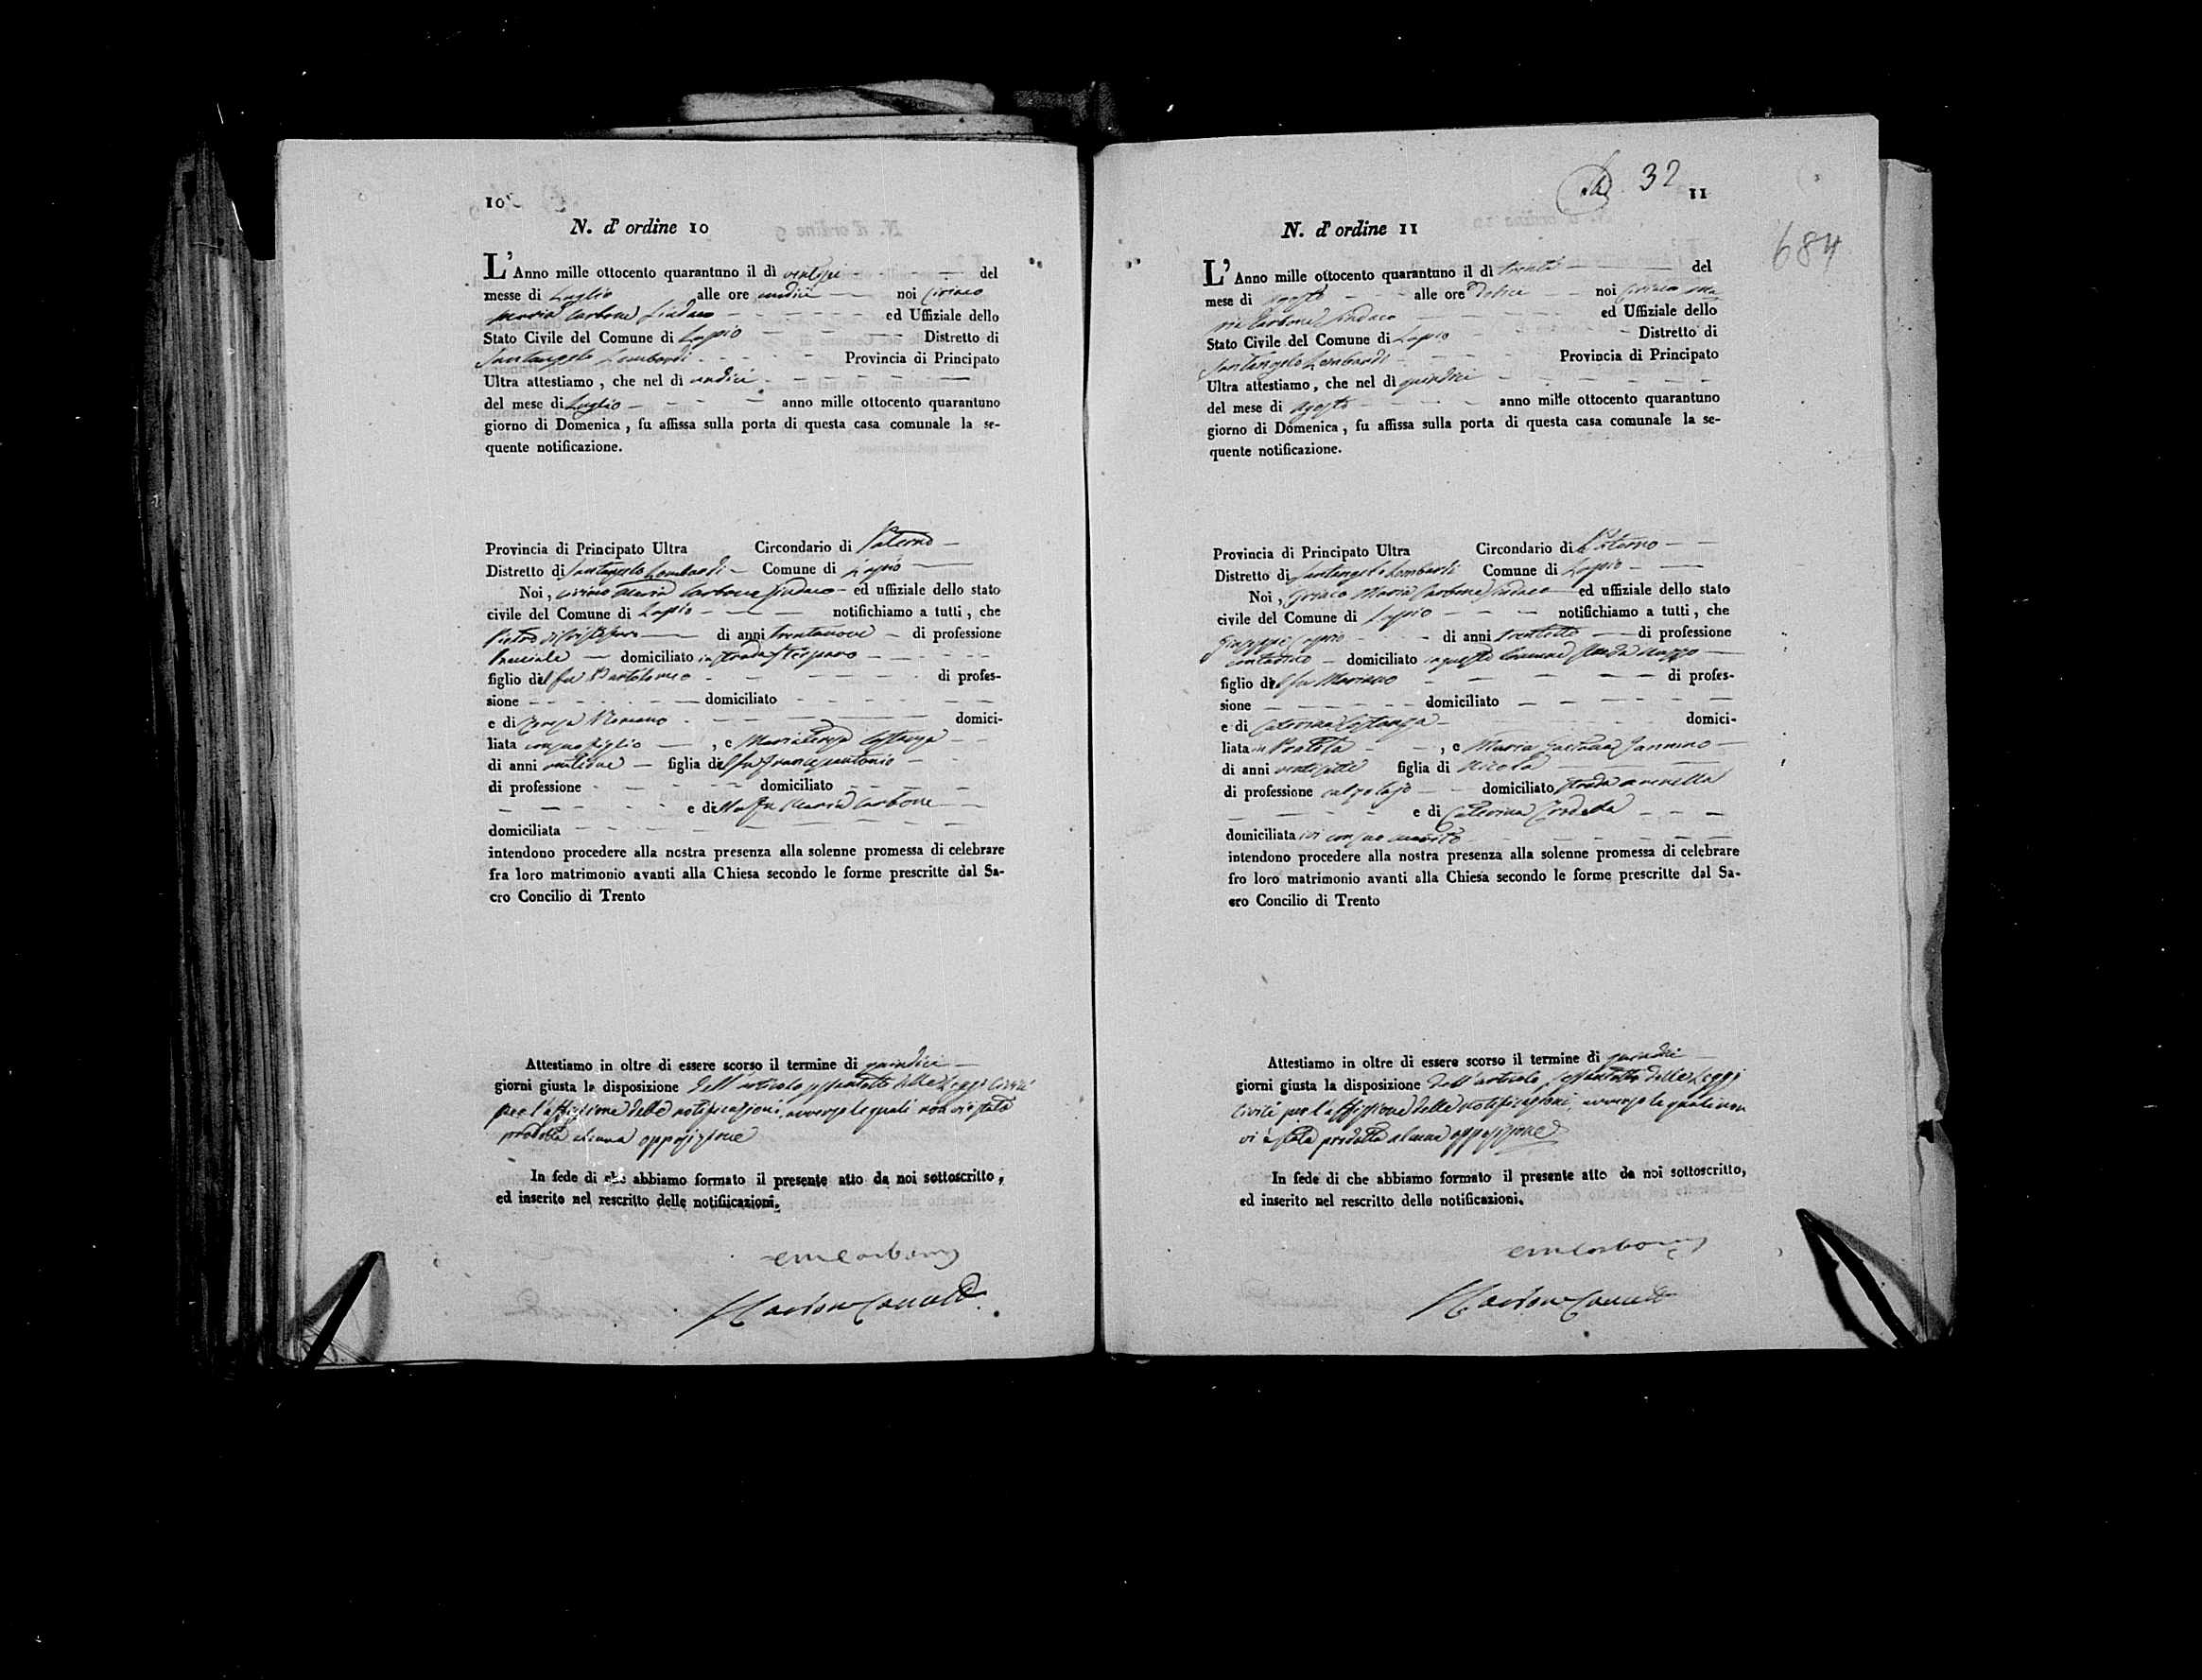 10
N. d' ordine 10
L' Anno mille ottocento quarantuno il dì ventisei del
messe di Luglio alle ore undici noi Ciriaco
Maria Carbone Sindaco ed Uffiziale dello
Stato Civile del Comune di Lapio Distretto di
Santangelo Lombardi Provincia di Principato
Ultra attestiamo , che nel dì undici
del mese di Luglio anno mille ottocento quarantuno
giorno di Domenica , fu affissa sulla porta di questa casa comunale la se-
quente notificazione.
Provincia di Principato Ultra Circondario di Paterno
Distretto di Santangelo Lombardi Comune di Lapio
Noi , Maria Carbone Sindaco ed uffiziale dello stato
civile del Comune di Lapio notifichiamo a tutti , che
Pietro di anni trentanove di professione
domiciliato in strada
figlio del fu Bartolomeo di profes-
sione domiciliato
e di Teresa Romano domici-
liata con suo figlio , e Maria Teresa Costanza
di anni figlia del fu Francescantonio
di professione domiciliato
e della fu Maria Carbone
domiciliata
intendono procedere alla nostra presenza alla solenne promessa di celebrare
fra loro matrimonio avanti alla Chiesa secondo le forme prescritte dal Sa-
cro Concilio di Trento
Attestiamo in oltre di essere scorso il termine di quindici
giorni giusta la disposizione dell'articolo sessantotto delle Leggi Civili
per l'affissione delle notificazioni, avverso le quali non vi è stata
prodotta alcuna opposizione
In fede di che abbiamo formato il presente atto da noi sottoscritto ,
ed inserito nel rescritto delle notifiicazioni.
CMCarbone
32
11
684
N. d' ordine 11
L' Anno mille ottocento quarantuno il dì trenta del
mese di Agosto alle ore dodici noi Ciriaco Ma
ria Carbone Sindaco ed Uffiziale dello
Stato Civile del Comune di Lapio Distretto di
Santangelo Lombardi Provincia di Principato
Ultra attestiamo , che nel dì quindici
del mese di Agosto anno mille ottocento quarantuno
giorno di Domenica , fu affissa sulla porta di questa casa comunale la se-
quente notificazione.
Provincia di Principato Ultra Circondario di Paterno
Distretto di Santangelo Lombardi Comune di Lapio
Noi , Ciriaco Maria Carbone Sindaco ed uffiziale dello stato
civile del Comune di Lapio notifichiamo a tutti , che
Giuseppe di anni trentotto di professione
contadino domiciliato in questo Comune strada
figlio del fu Mariano di profes-
sione domiciliato
e di Caterina Costanza domici-
liata in , e Maria Gaetana Jannino
di anni ventisette figlia di Nicola
di professione calzolajo domiciliato strada
e di Caterina
domiciliata ivi con suo marito
intendono procedere alla nostra presenza alla solenne promessa di celebrare
fro loro matrimonio avanti alla Chiesa secondo le forme prescritte dal Sa-
cro Concilio di Trento
Attestiamo in oltre di essere scorso il termine di quindici
giorni giusta la disposizione dell'articolo sessantotto delle Leggi
Civili per l'affissione delle notificazioni, avverso le quali non
vi è stata prodotta alcuna opposizione
In fede di che abbiamo formato il presente atto da noi sottoscritto,
ed inserito nel rescritto delle notificazioni.
CMCarbone